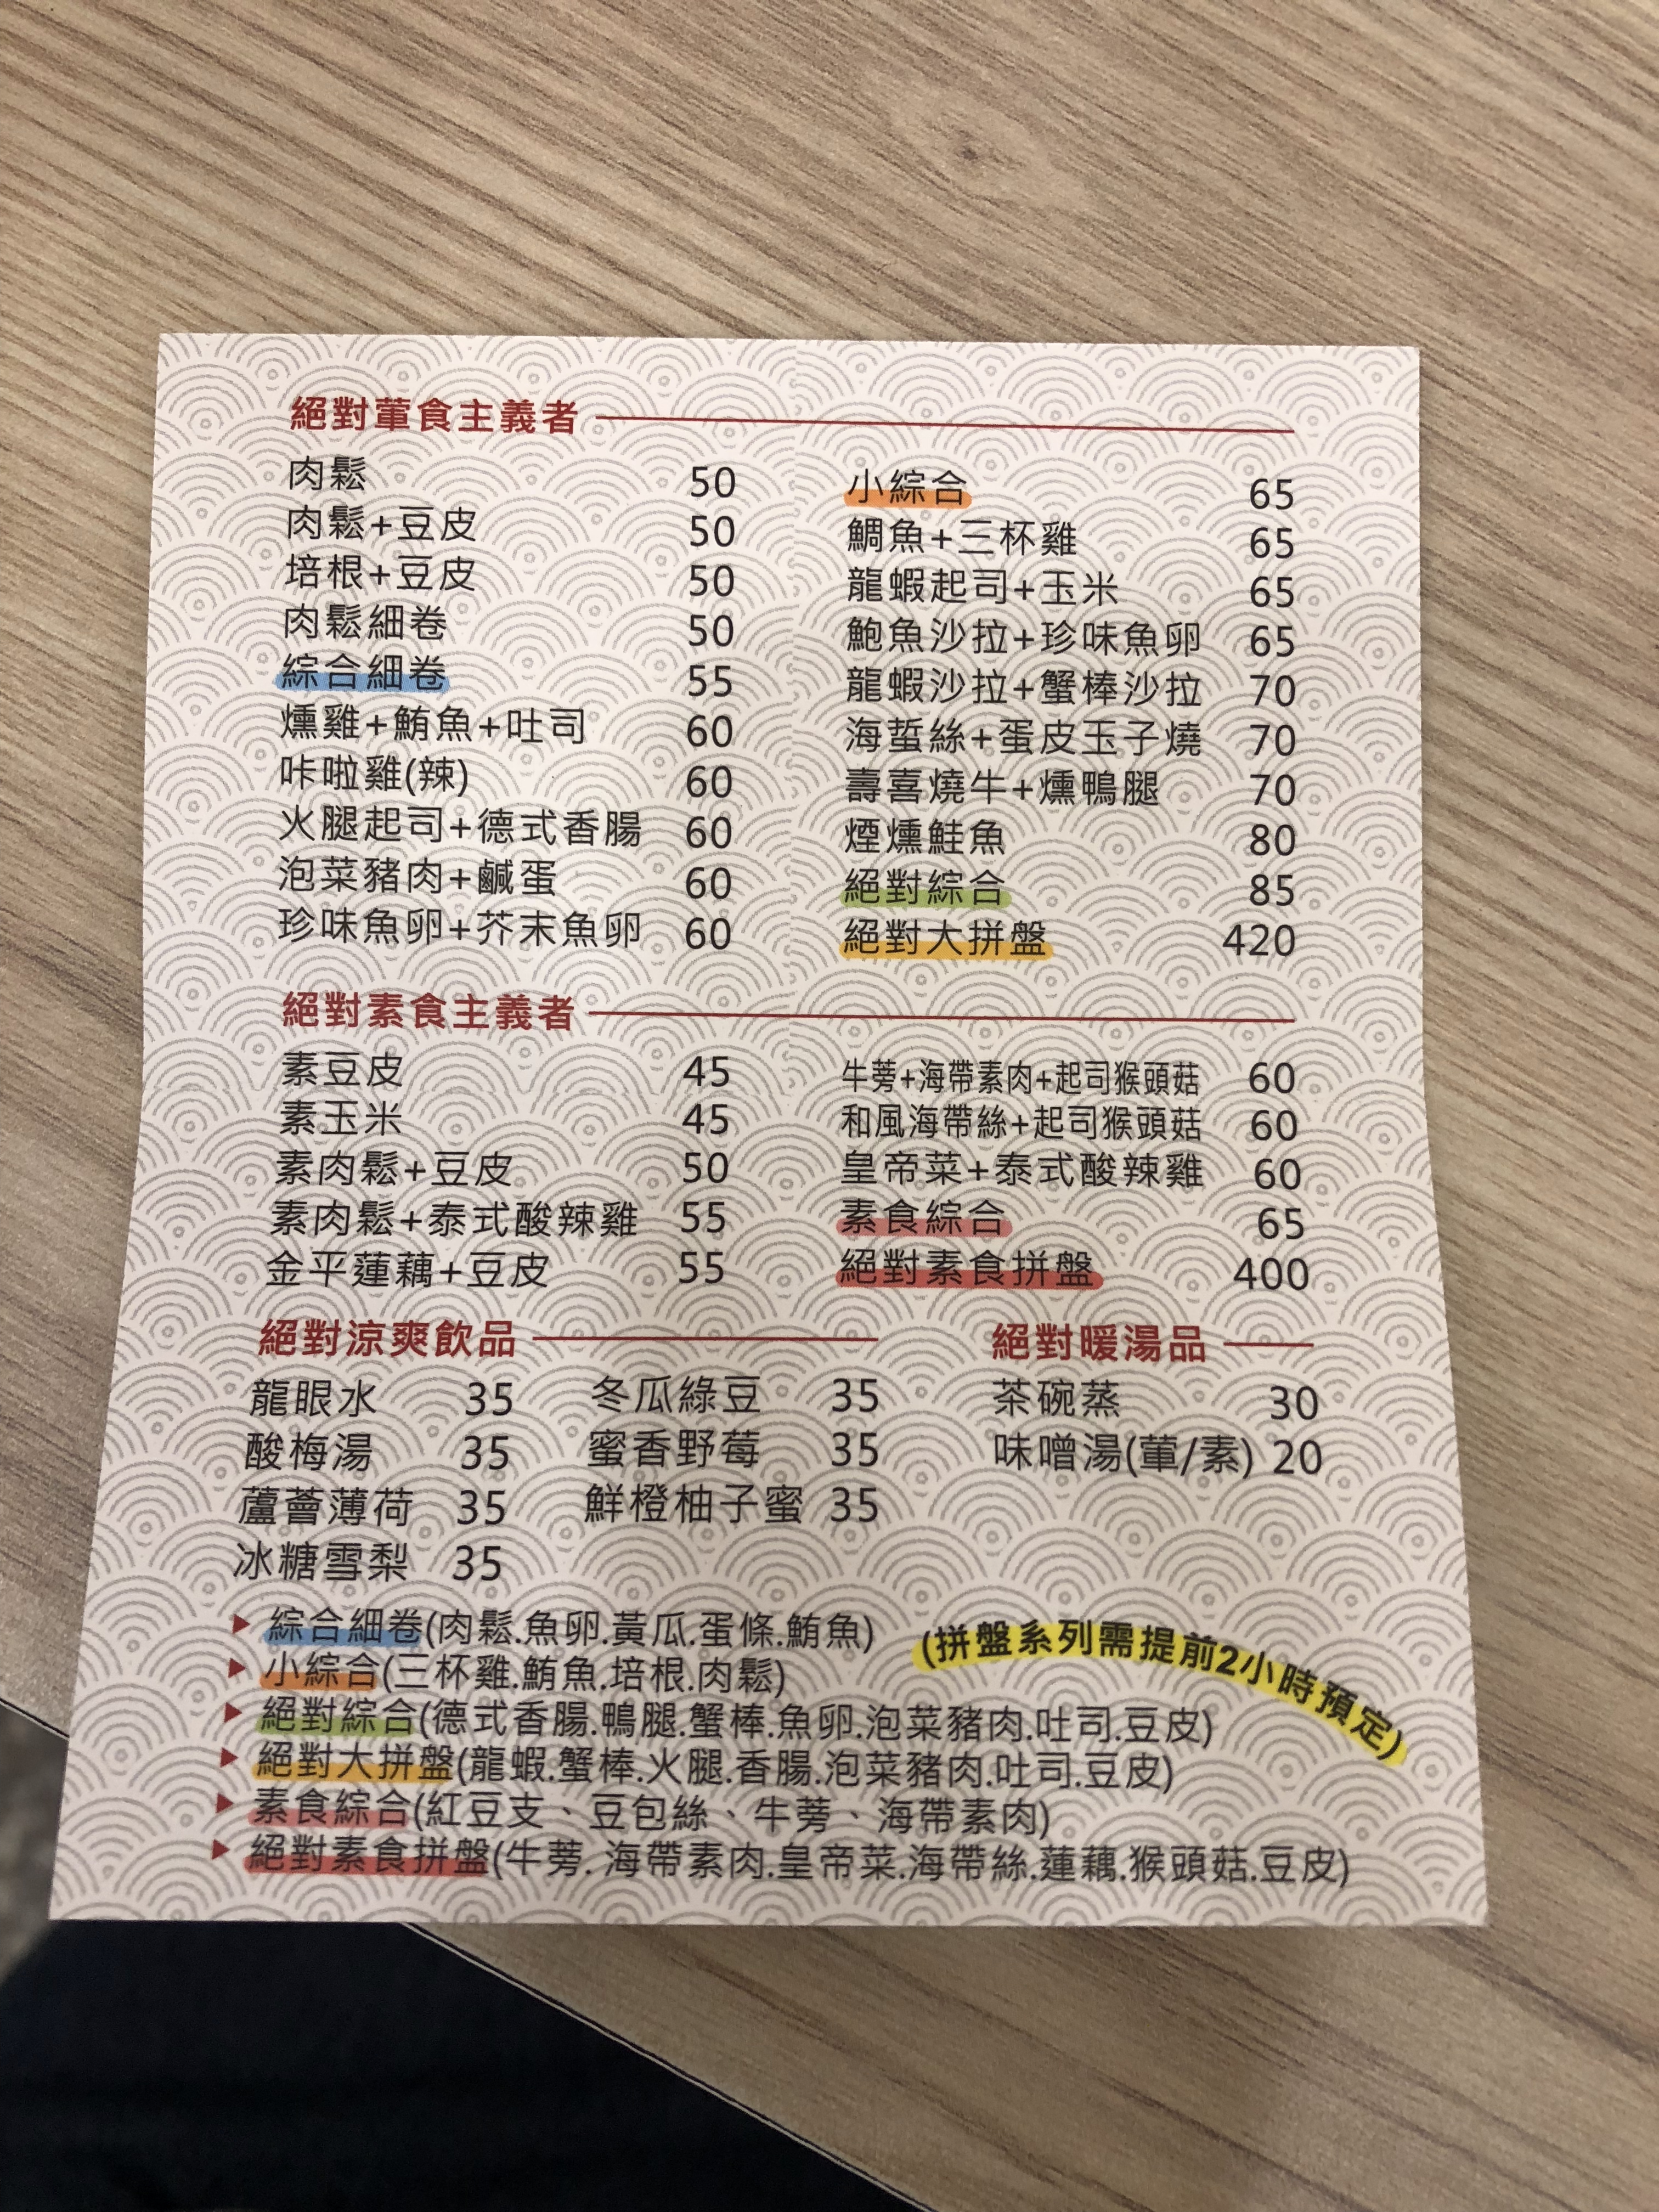 絕對葷食主義者
肉鬆 50
肉鬆+豆皮 50
培根+豆皮 50
肉鬆細卷 50
綜合細卷 55
燻雞+鮪魚+吐司 60
咔啦雞(辣) 60
火腿起司+德式香腸 60
泡菜豬肉+鹹蛋 60
珍味魚卵+芥末魚卵 60
小綜合 65
鯛魚+三杯雞 65
龍蝦起司+玉米 65
鮑魚沙拉+珍味魚卵 65
龍蝦沙拉+蟹棒沙拉 70
海蜇絲+蛋皮玉子燒 70
壽喜燒牛+燻鴨腿 70
煙燻鮭魚 80
絕對綜合 85
絕對大拼盤 420
絕對素食主義者
素豆皮 45
素玉米 45
素肉鬆+豆皮 50
素肉鬆+泰式酸辣雞 55
金平蓮藕+豆皮 55
牛蒡+海帶素肉+起司猴頭菇 60
和風海帶絲+起司猴頭菇 60
皇帝菜+泰式酸辣雞 60
素食綜合 65
絕對素食拼盤 400
絕對涼爽飲品
龍眼水 35
酸梅湯 35
蘆薈薄荷 35
冰糖雪梨 35
冬瓜綠豆 35
蜜香野莓 35
鮮橙柚子蜜 35
絕對暖湯品
茶碗蒸 30
味噌湯(葷/素) 20
綜合細卷(肉鬆.魚卵.黃瓜.蛋條.鮪魚)
小綜合(三杯雞.鮪魚.培根.肉鬆)
絕對綜合(德式香腸.鴨腿.蟹棒.魚卵.泡菜豬肉.吐司.豆皮)
絕對大拼盤(龍蝦.蟹棒.火腿.香腸.泡菜豬肉.吐司.豆皮)
素食綜合(紅豆支、豆包絲、牛蒡、海帶素肉)
絕對素食拼盤(牛蒡. 海帶素肉.皇帝菜.海帶絲.蓮藕.猴頭菇.豆皮)
(拼盤系列需提前2小時預定)